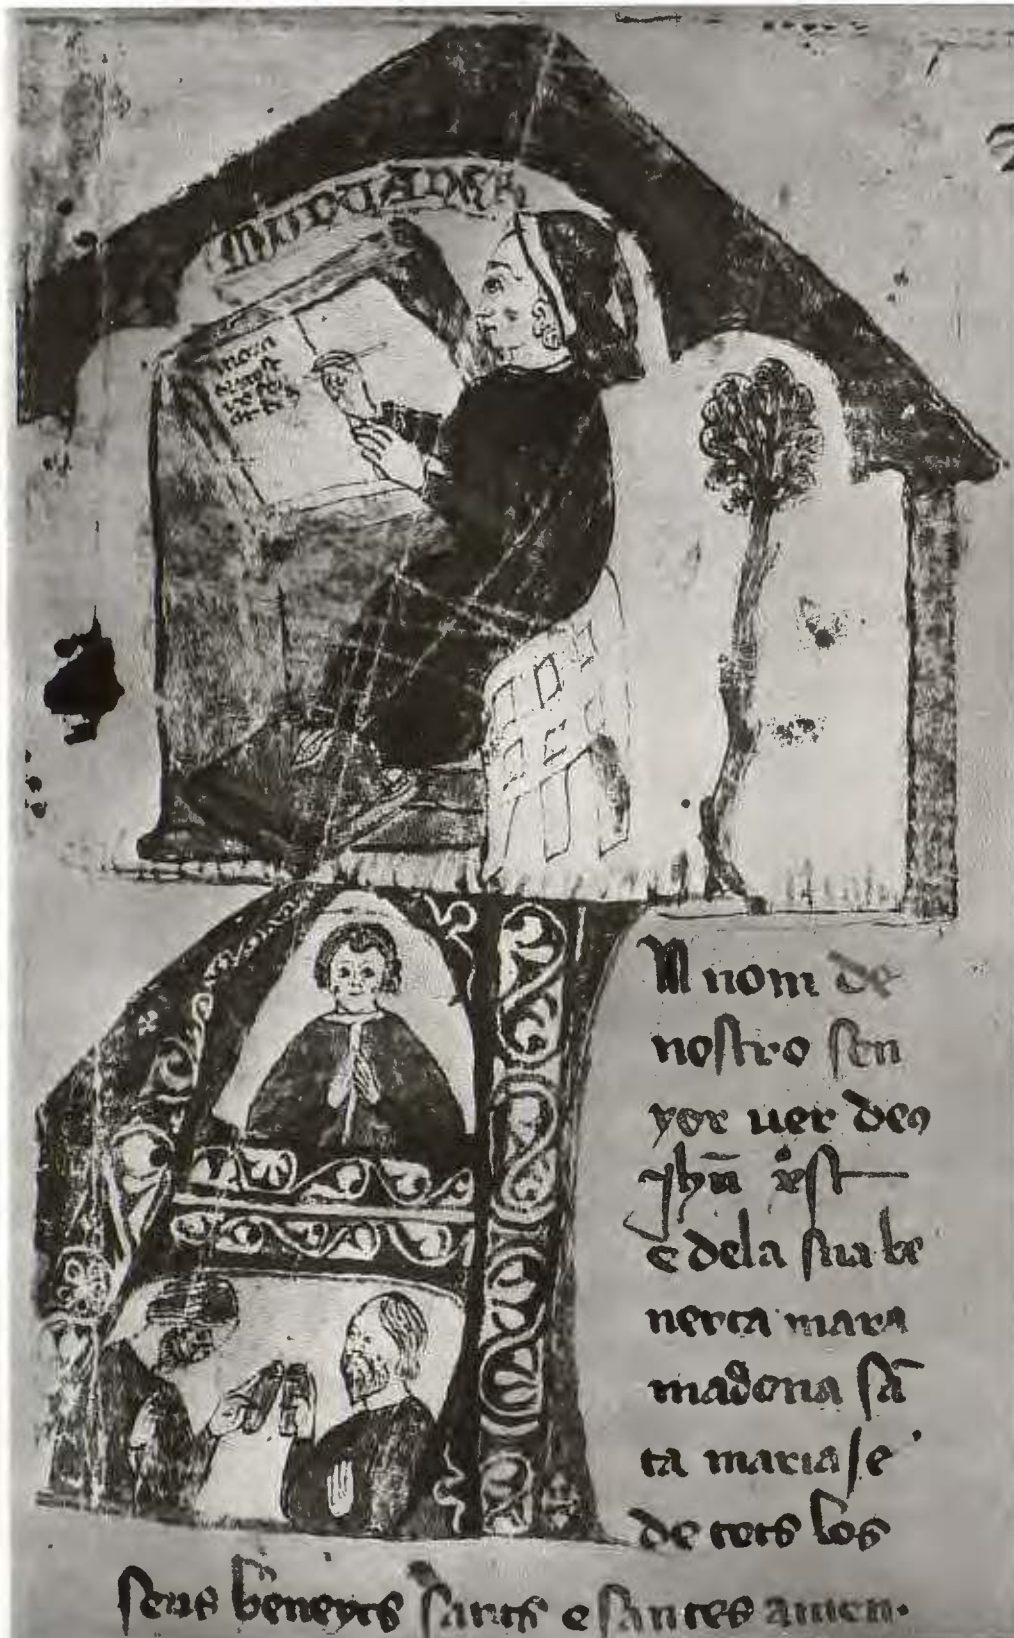 MUNTANER
N nom de
nostro sen
yor uer deu
yhũ xp̃st
e dela sua be
neyta mara
madona sã
ta maria / e
de tots los
seus beneyts sants e santes amen.